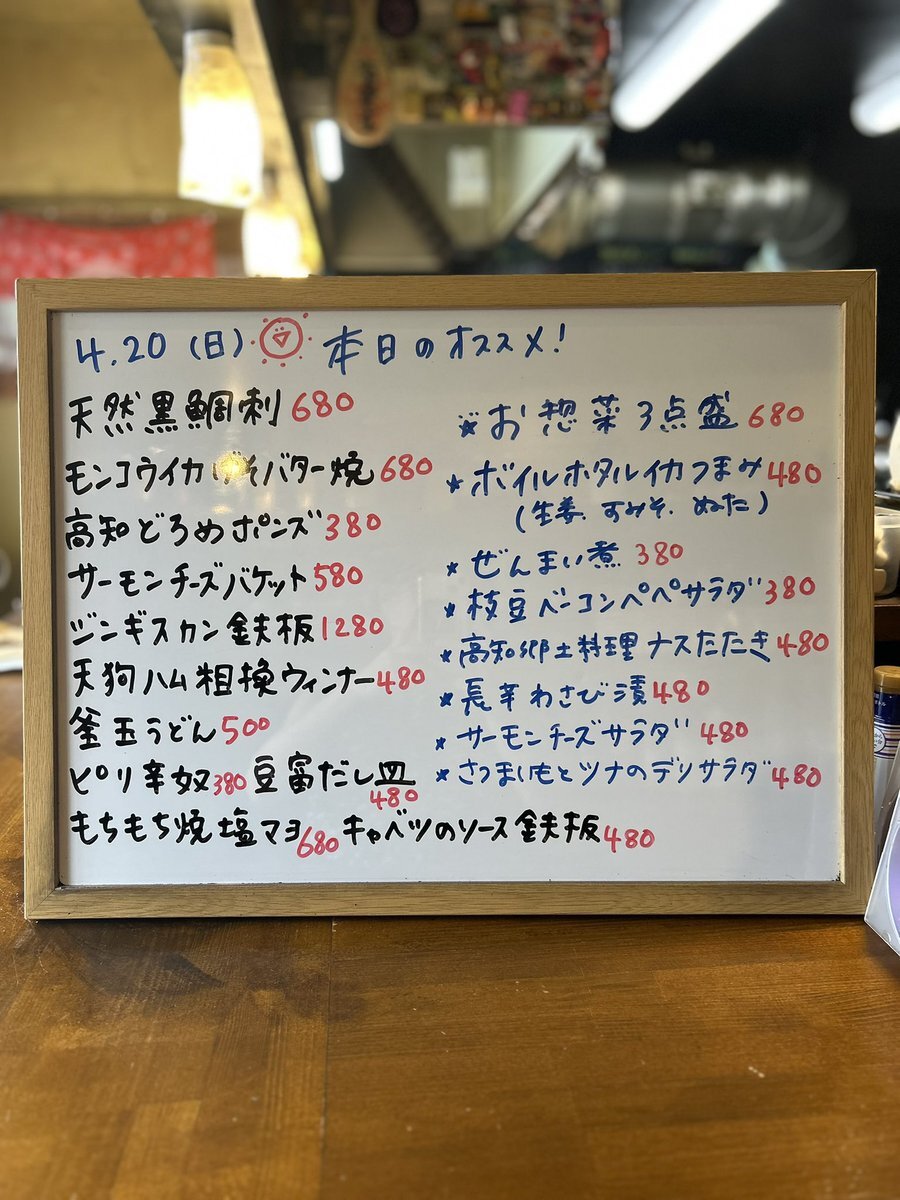 4.20(日) 本日のオススメ!
天然黒鯛刺 680
モンコウイカげそバター焼 680
高知どろめポンズ 380
サーモンチーズバケット 580
ジンギスカン鉄板 1280
天狗ハム粗挽ウィンナー 480
釜玉うどん 500
ピリ辛奴 380 豆富だし皿 480
もちもち焼塩マヨ 680 キャベツのソース鉄板 480
★お惣菜3点盛 680
★ボイルホタルイカつまみ 480
(生姜.すみそ.ぬた)
★ぜんまい煮 380
★枝豆ベーコンペペサラダ 380
★高知郷土料理 ナスたたき 480
★長芋わさび漬 480
★サーモンチーズサラダ 480
★さつまいもとツナのデリサラダ 480